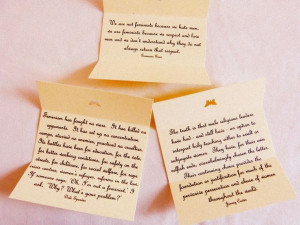 We are not feminists because we hate men,
we are feminists because we respect and love
men and we don't understand why they do not
always return that respect.
Feminism has fought no wars. It has killed no
opponents. It has set up no concentration
camps, starved no enemies, practiced no cruelties.
Its battles have been for education, for the vote,
for better working conditions, for safety on the
streets, for childcare, for social welfare, for rape
crisis centres, women's refuges, reforms in the law.
If someone says, 'Oh, I'm not a feminist,' I
ask, 'Why? What's your problem?'
Dale Spender
The truth is that male religious leaders
have had - and still have - an option to
interpret holy teachings either to exalt or
subjugate women. They have, for their own
selfish ends, overwhelmingly chosen the latter.
Their continuing choice provides the
foundation or justification for much of the
pervasive persecution and abuse of women
throughout the world.
Jimmy Carter